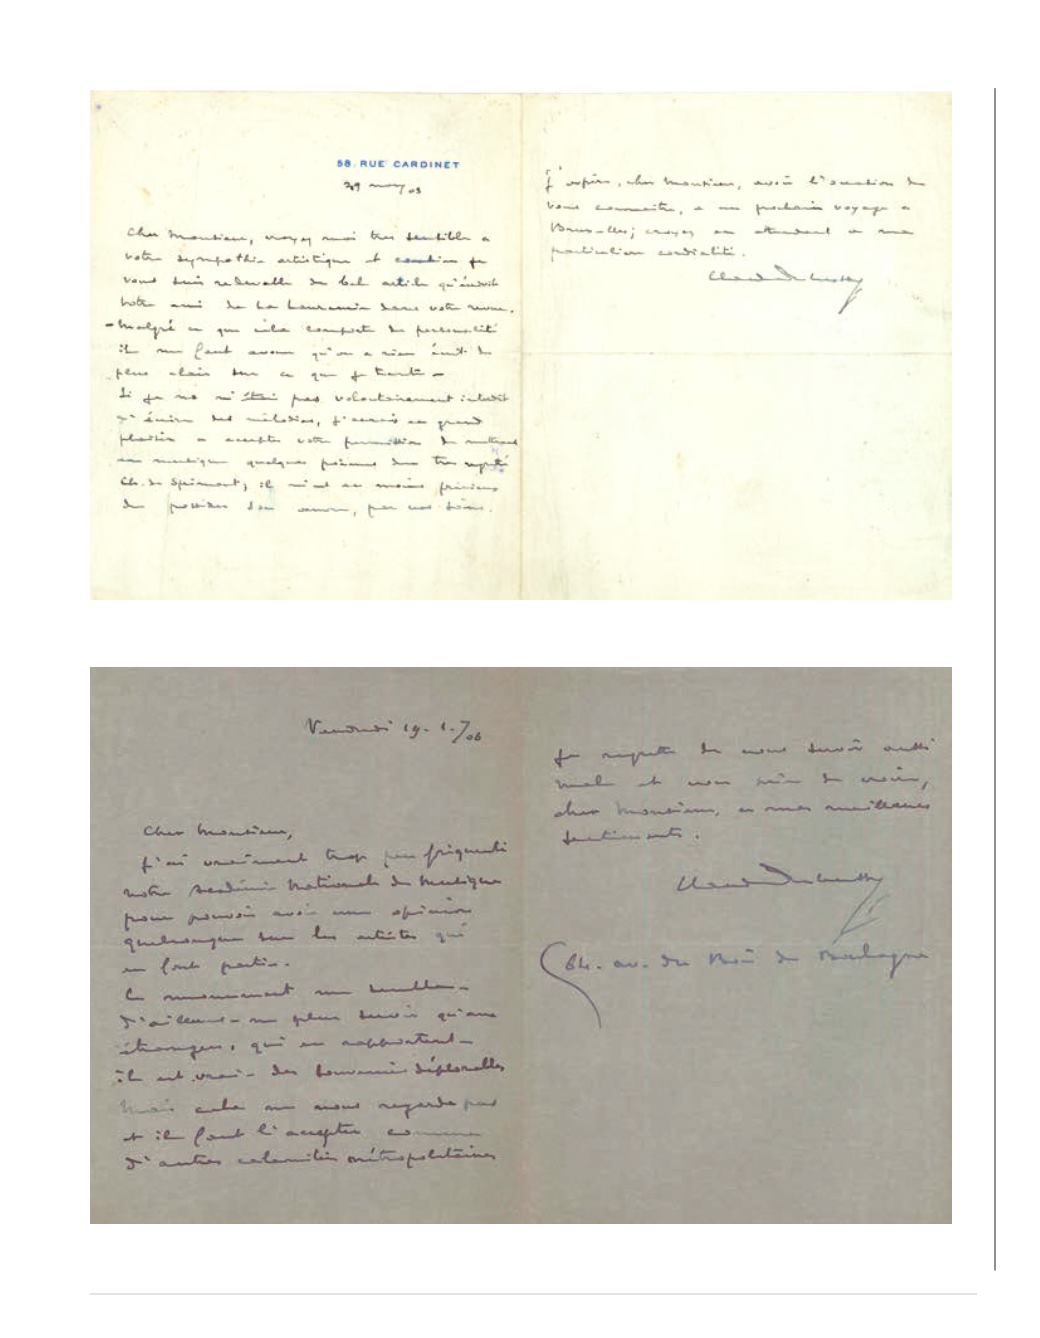 58. RUE CARDINET
29 mars 03
Cher Monsieur, croyez moi très sensible a
votre sympathie artistique et combien je
vous suis redevable du bel article qu'écrivit
votre ami de La Laurencie dans votre revue.
– Malgré ce que cela comporte de personnalité
il me faut avouer qu'on a rien écrit de
plus clair sur ce que je tente –
Si je ne m'étais pas volontairement interdit
d'écrire des mélodies, j'aurais eu grand
plaisir a accepter votre permission de mettre
en musique quelques poèmes du très
Ch. de ; il m'est au moins précieux
de posséder son œuvre, par vos soins.
J'espère, cher Monsieur, avoir l'occasion de
vous connaître, a un prochain voyage a
Bruxelles; croyez en attendant a ma
particulière cordialité.
Claude Debussy
Vendredi 19. 1. /06
Cher Monsieur,
J'ai vraiment trop peu fréquenté
notre Académie Nationale de Musique
pour pouvoir avoir une opinion
quelconque sur les artistes qui
en font partie.
Ce monument me semble –
d'ailleurs – ne plus servir qu'aux
étrangers, qui en rapportent –
il est vrai – des souvenirs déplorables
Mais cela ne nous regarde pas
et il faut l'accepter comme
d'autres calamités métropolitaines
Je regrette de vous servir aussi
mal et vous prie de croire,
cher Monsieur, a mes meilleurs
sentiments.
Claude Debussy
64. av. du Bois de Boulogne